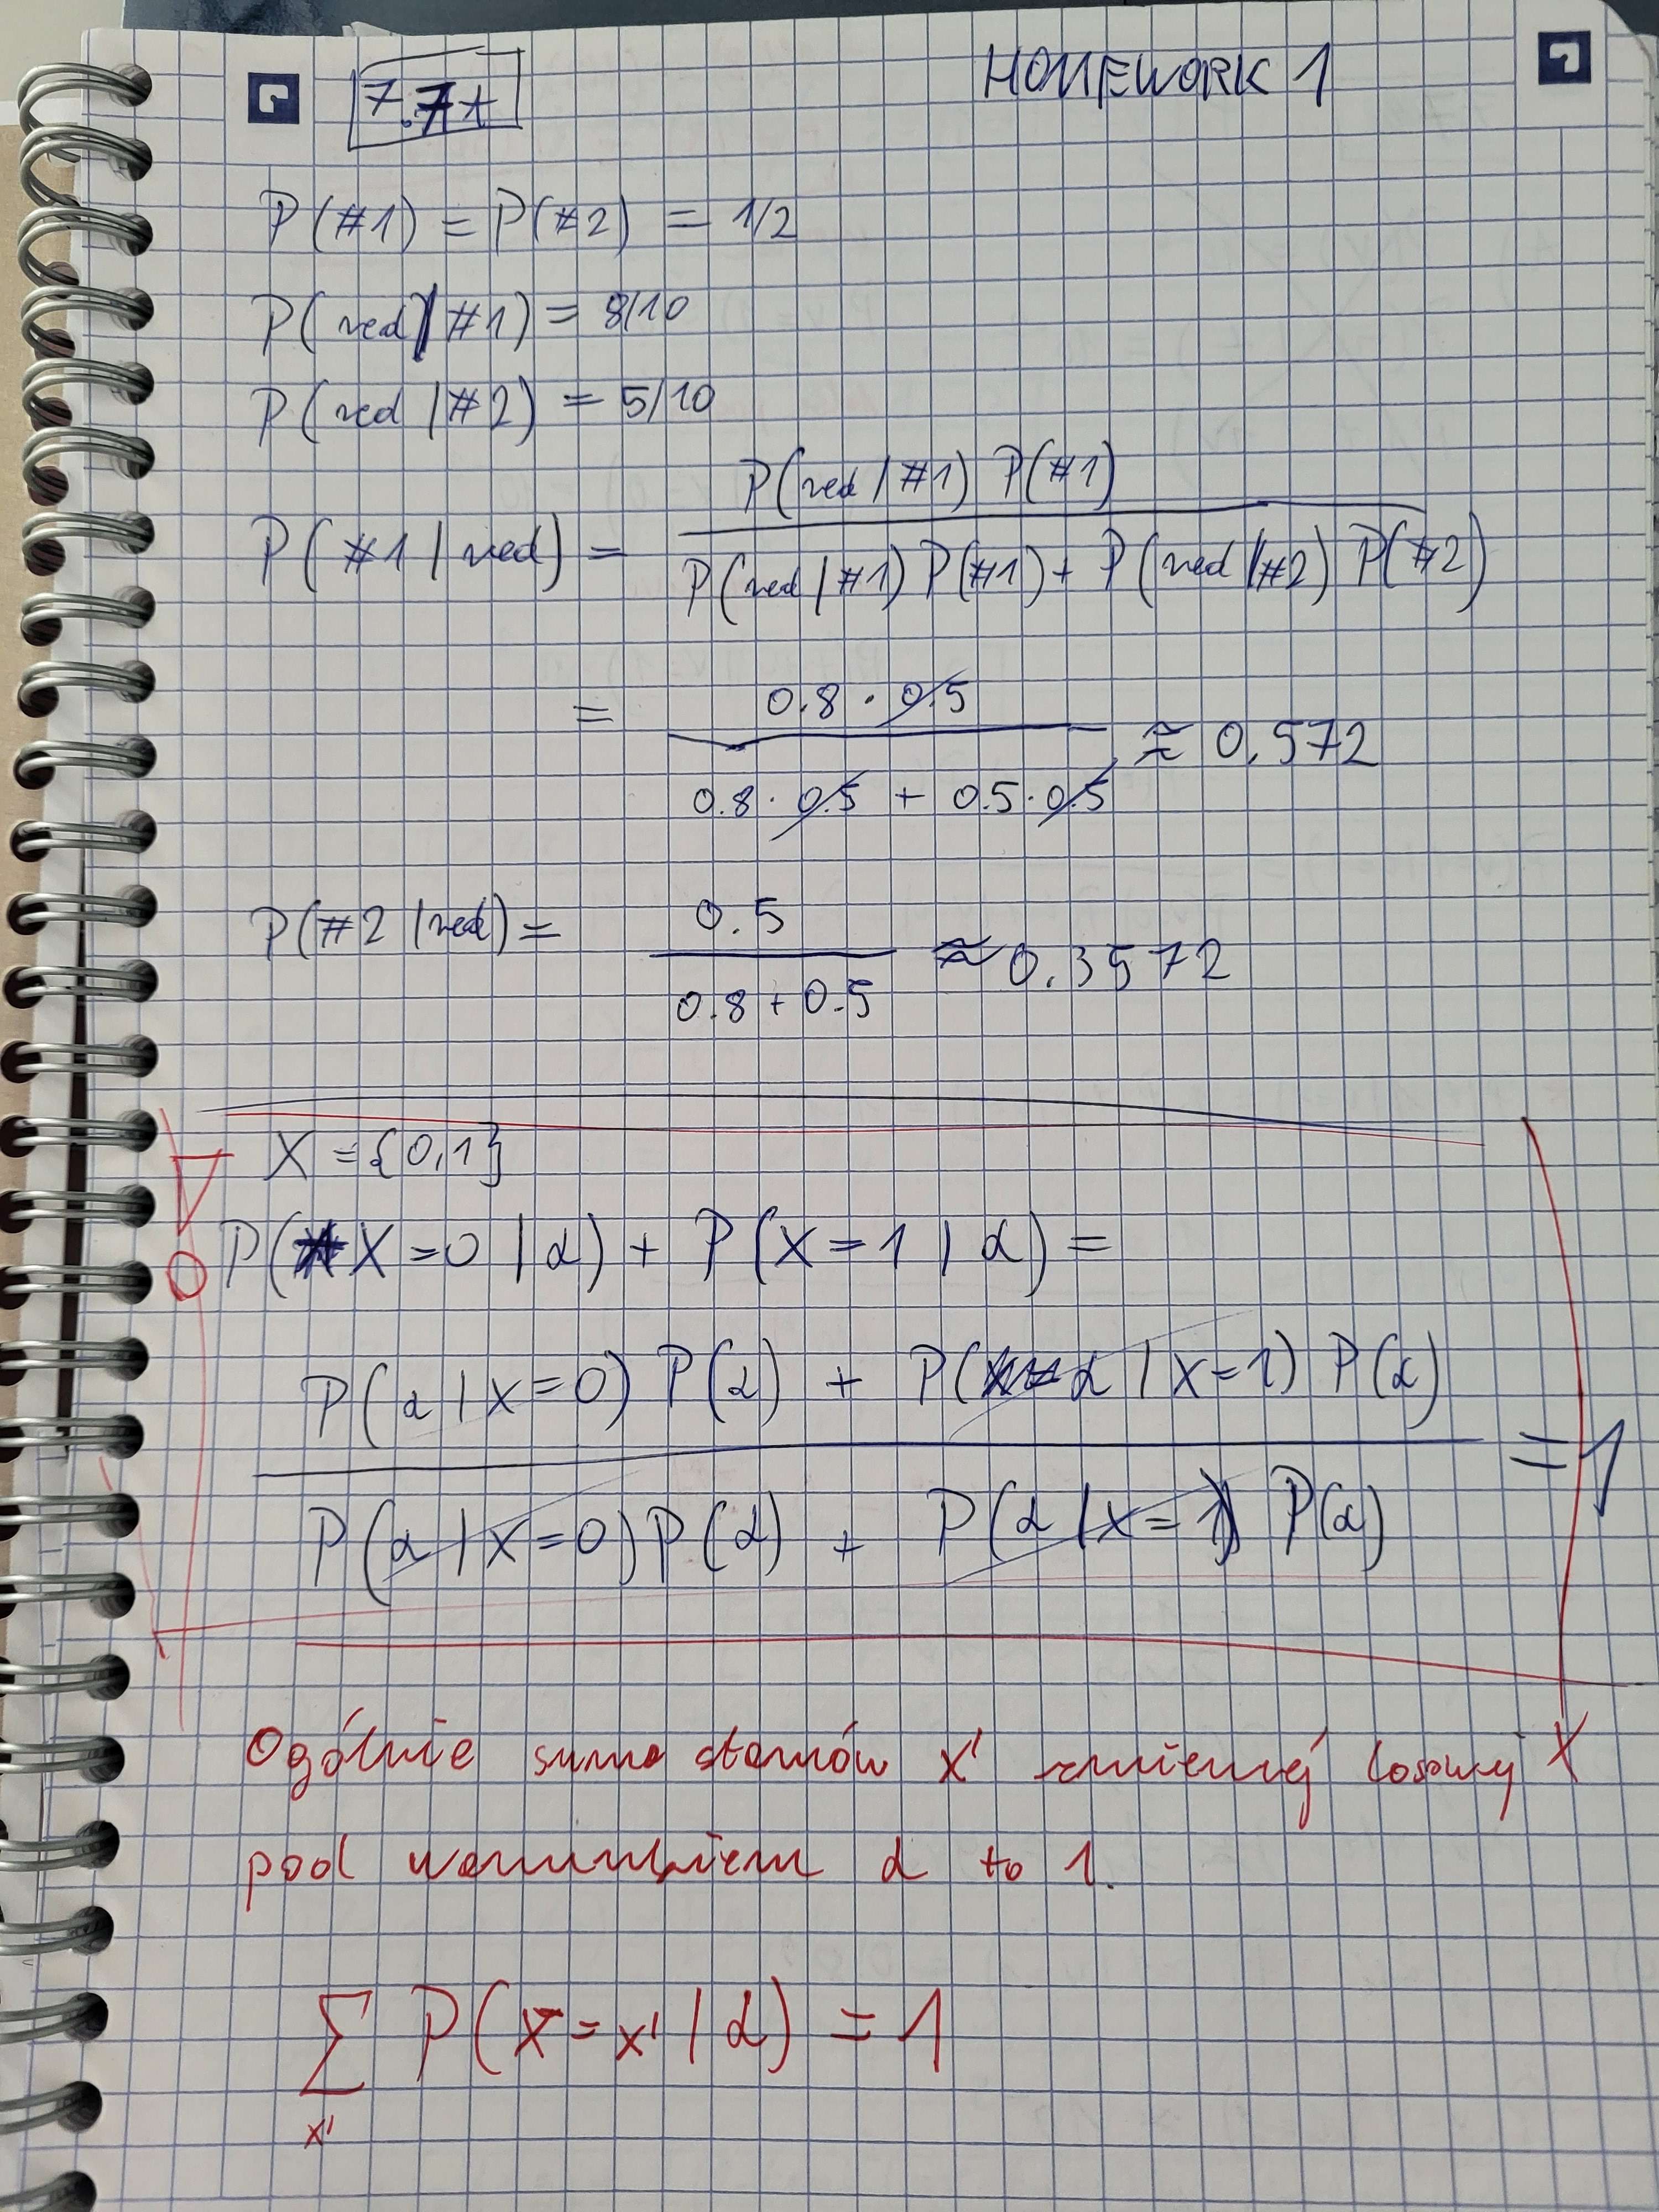 7.7+
HOMEWORK 1
P(#1) = P(#2) = 1/2
P(red|#1) = 8/10
P(red|#2) = 5/10
P(#1|red) = P(red|#1) P(#1) / P(red|#1) P(#1) + P(red|#2) P(#2)
= 0.8 · 0.5 / 0.8 · 0.5 + 0.5 · 0.5 ≈ 0.572
P(#2|red) = 0.5 / 0.8 + 0.5 ≈ 0.3572
X = {0,1}
P(X=0|α) + P(X=1|α) =
P(α|X=0) P(α) + P(α|X=1) P(α) / P(α|X=0) P(α) + P(α|X=1) P(α) = 1
Ogólnie suma stanów x' zmiennej losowej X
pod warunkiem α to 1.
∑ P(X=x'|α) = 1
x'